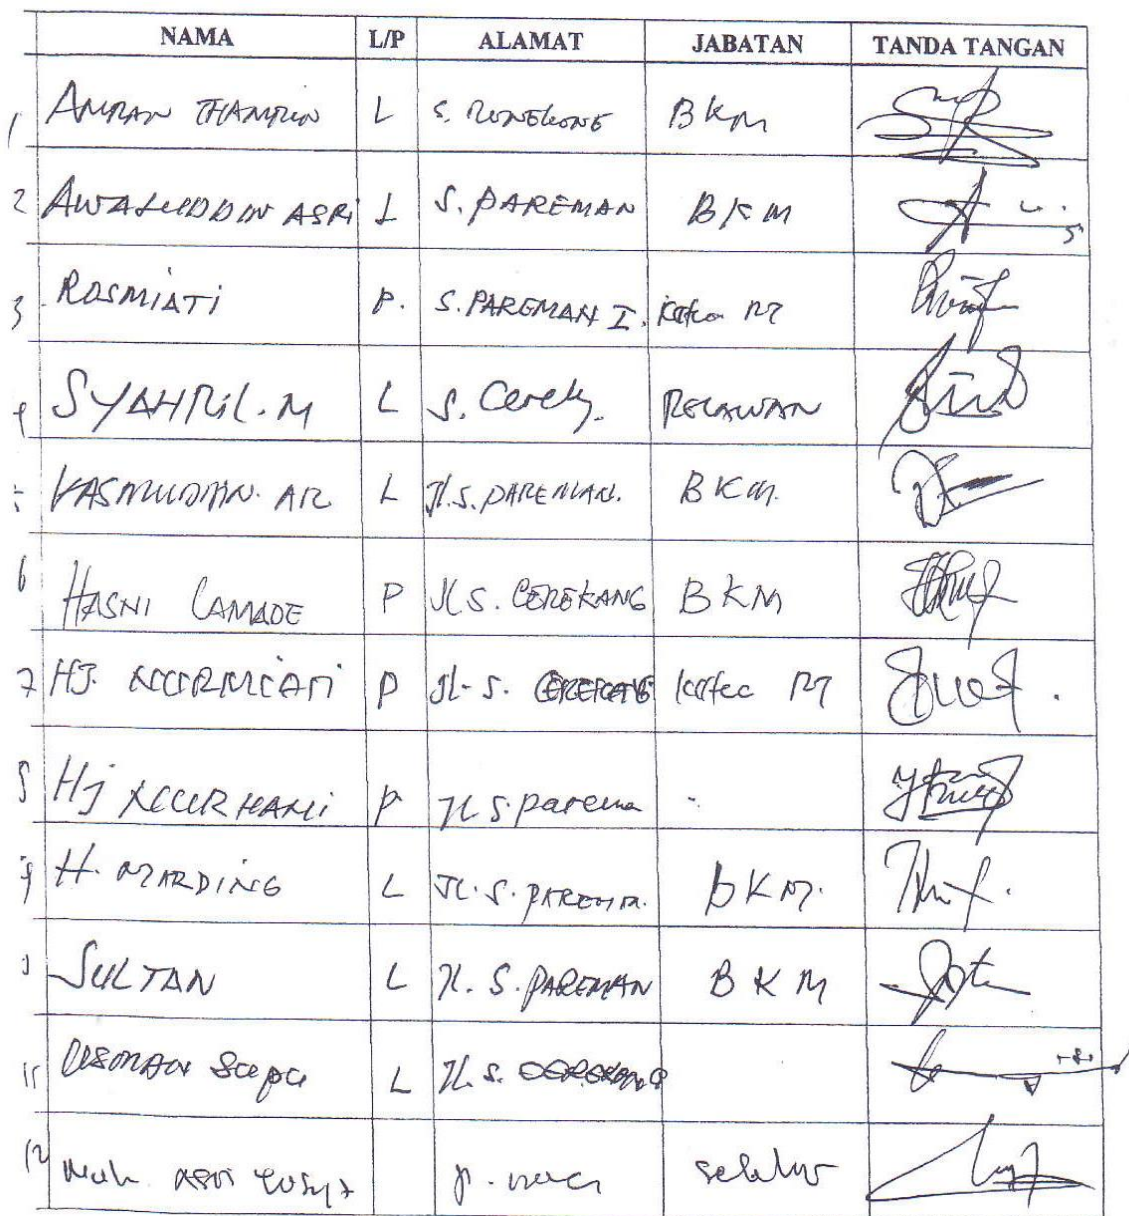 NAMA L/P ALAMAT JABATAN TANDA TANGAN
1 AMRAN THAMRIN L S. RONGKONG BKM
2 AWALUDDIN ASRI L S. PAREMAN BKM
3 ROSMIATI P. S. PAREMAN I. Ketua RT
SYAHRIL. M L S. RELAWAN
KASMUDDIN. AR L Jl. S. PAREMAN. BKM.
6 HASNI LAMADE P Jl S. CEREKANG BKM
7 HJ. NURMIATI P Jl. S. CEREKANG Ketua RT
Hj NURHANI P Jl S. Parema
H. MARDING L JL. S. PAREMA. BKM.
SULTAN L Jl. S. PAREMAN BKM
11 USMAN L Jl. S. CEREKANG
12 Muh. ASRI